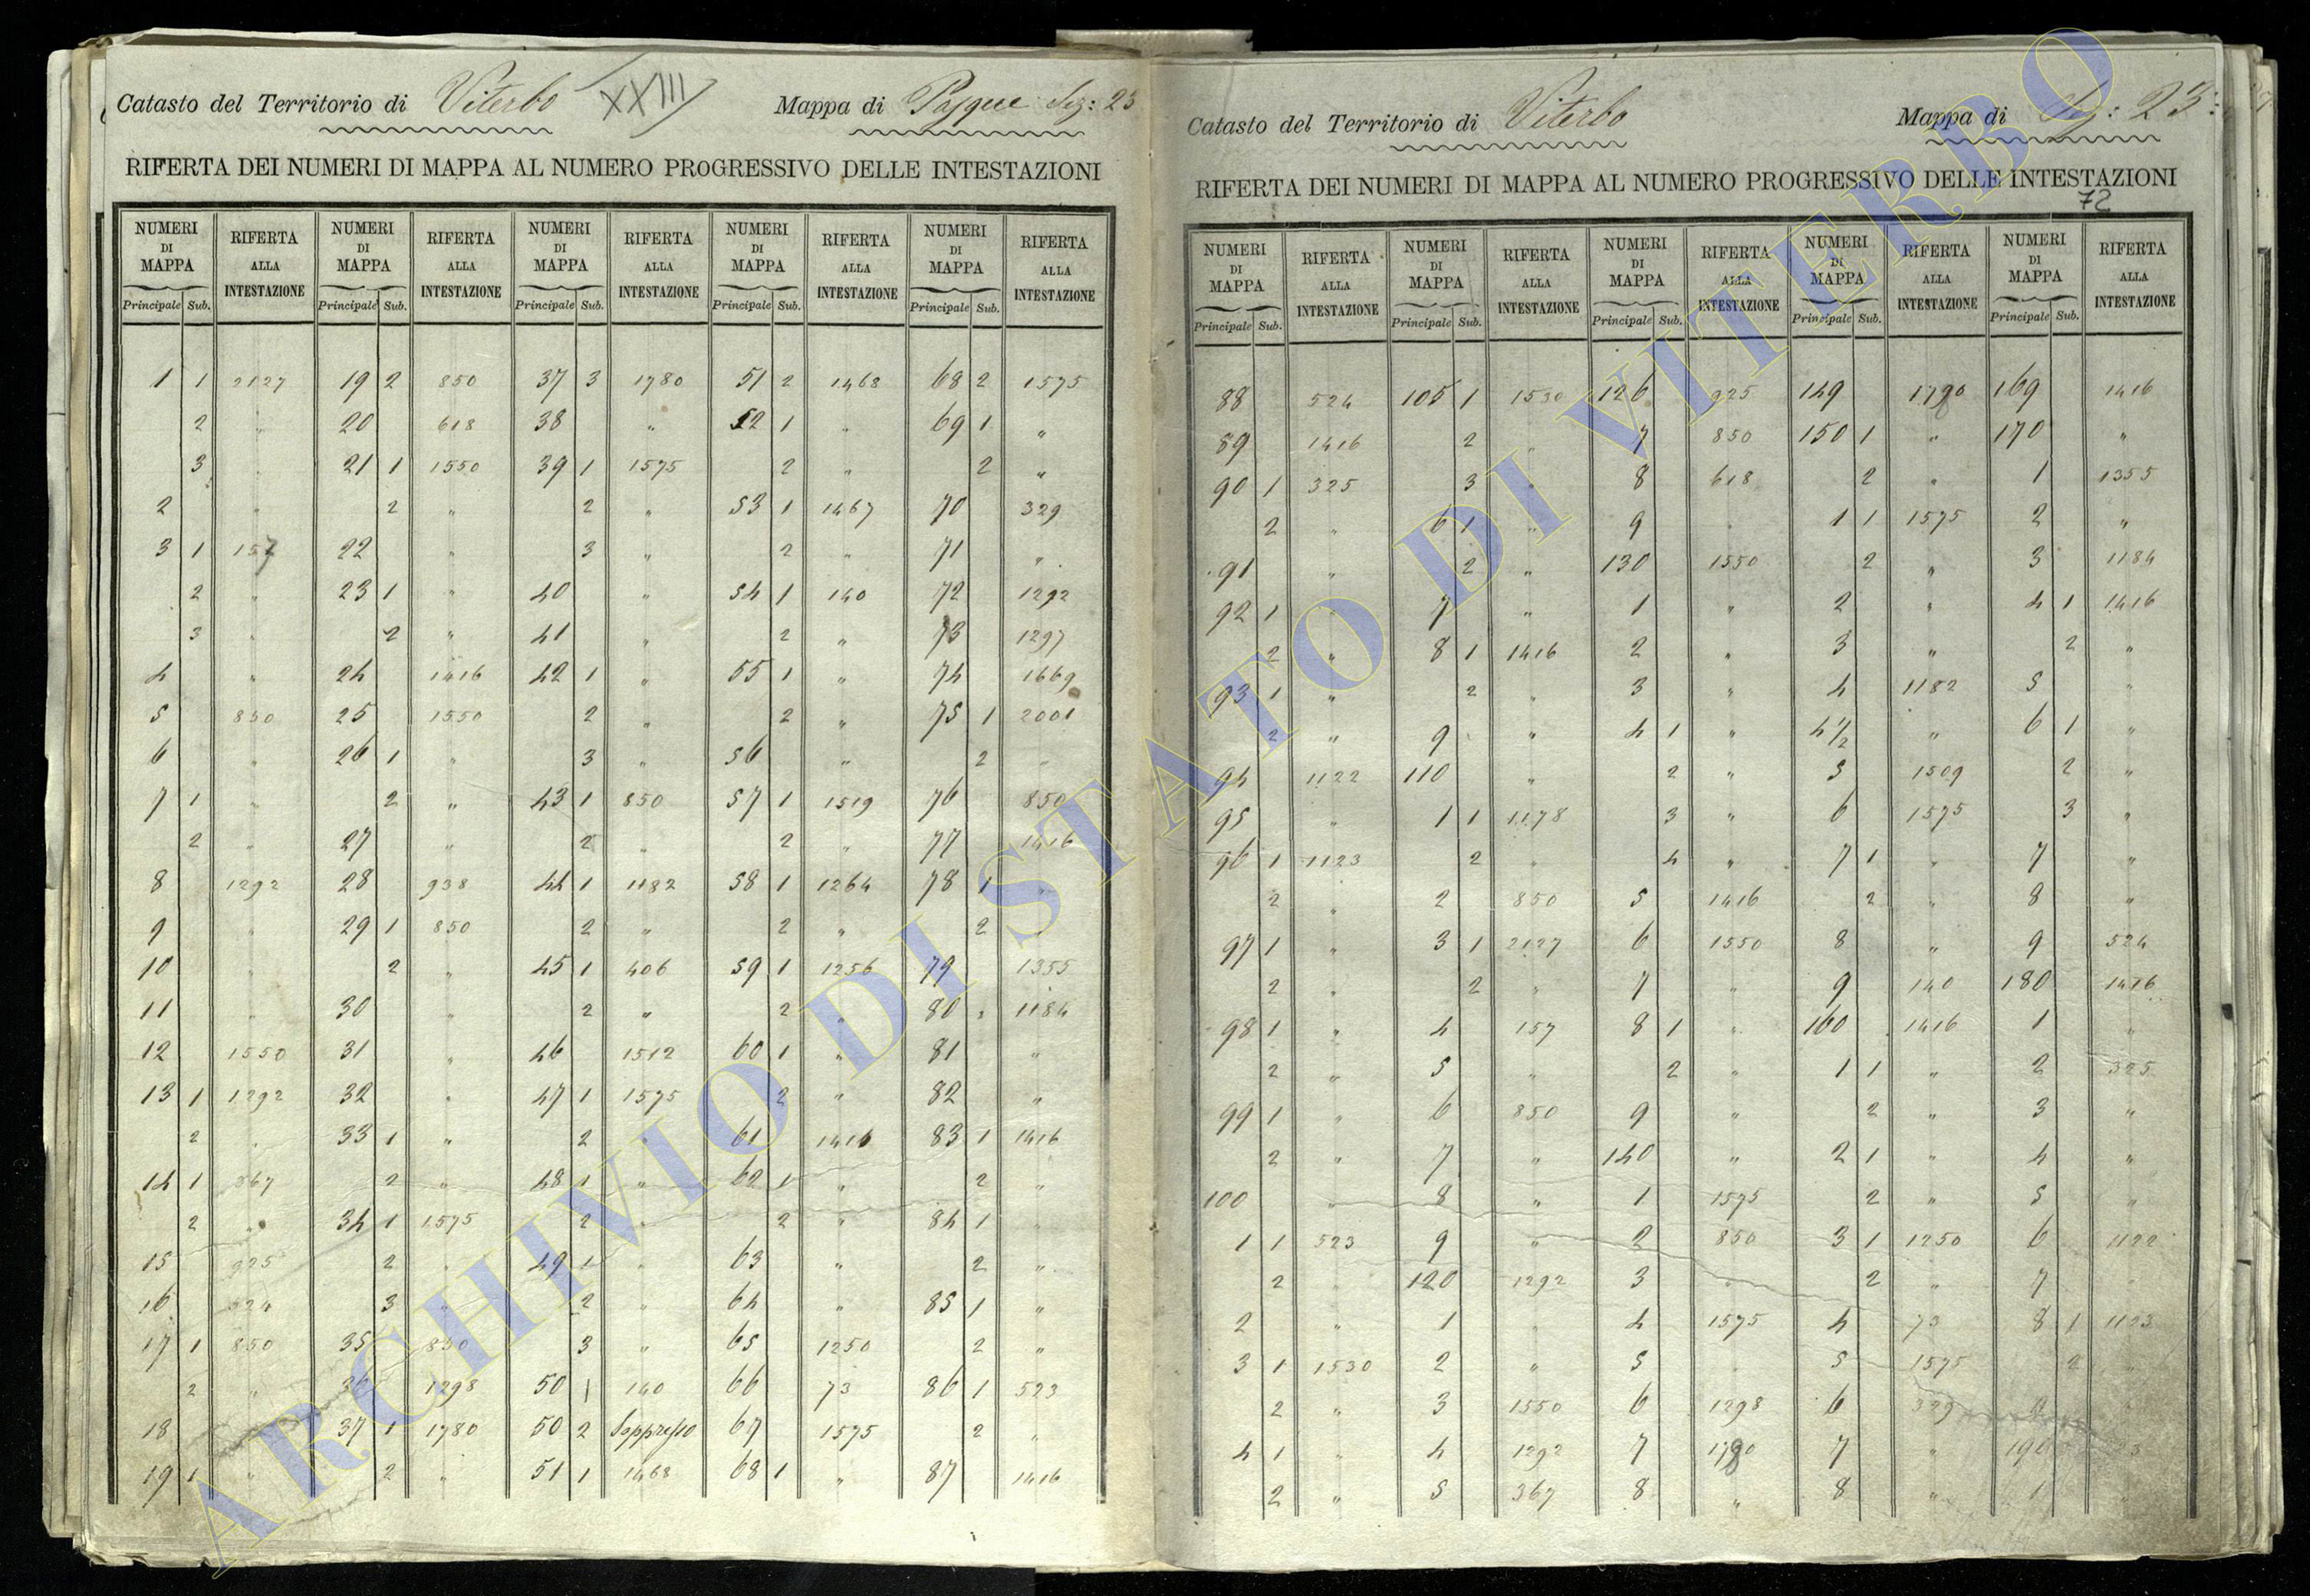 Catasto del Territorio di Viterbo XXIII Mappa di Sez: 23
RIFERTA DEI NUMERI DI MAPPA AL NUMERO PROGRESSIVO DELLE INTESTAZIONI
NUMERI DI MAPPA RIFERTA ALLA INTESTAZIONE NUMERI DI MAPPA RIFERTA ALLA INTESTAZIONE NUMERI DI MAPPA RIFERTA ALLA INTESTAZIONE NUMERI DI MAPPA RIFERTA ALLA INTESTAZIONE NUMERI DI MAPPA RIFERTA ALLA INTESTAZIONE
Principale Sub. Principale Sub. Principale Sub. Principale Sub. Principale Sub.
1 1 2127 19 2 850 37 3 1780 51 2 1468 68 2 1575
2 " 20 618 38 " 52 1 " 69 1 "
3 " 21 1 1550 39 1 1575 2 " 2 "
2 " 2 " 2 " 53 1 1467 70 329
3 1 157 22 " 3 " 2 " 71 "
2 " 23 1 " 40 " 54 1 140 72 1292
3 " 2 " 41 " 2 " 73 1297
4 " 24 1416 42 1 " 55 1 " 74 1669
5 850 25 1550 2 " 2 " 75 1 2001
6 " 26 1 " 3 " 56 " 2 "
7 1 " 2 " 43 1 850 57 1 1519 76 850
2 " 27 " 2 " 2 " 77 1416
8 1292 28 938 44 1 1182 58 1 1264 78 1 "
9 " 29 1 850 2 " 2 " 2 "
10 " 2 " 45 1 406 59 1 1256 79 1355
11 " 30 " 2 " 2 " 80 1184
12 1550 31 " 46 1512 60 1 " 81 "
13 1 1292 32 " 47 1 1575 2 " 82 "
2 " 33 1 " 2 " 61 1416 83 1 1416
14 1 367 2 " 48 1 " 62 1 " 2 "
2 " 34 1 1575 2 " 2 " 84 1 "
15 925 2 " 49 1 " 63 " 2 "
16 524 3 " 2 " 64 " 85 1 "
17 1 850 35 850 3 " 65 1250 2 "
2 " 36 1298 50 1 140 66 73 86 1 523
18 " 37 1 1780 50 2 Soppresso 67 1575 2 "
19 1 " 2 " 51 1 1468 68 1 " 87 1416
Catasto del Territorio di Viterbo Mappa di Sez: 23:
RIFERTA DEI NUMERI DI MAPPA AL NUMERO PROGRESSIVO DELLE INTESTAZIONI
72
NUMERI DI MAPPA RIFERTA ALLA INTESTAZIONE NUMERI DI MAPPA RIFERTA ALLA INTESTAZIONE NUMERI DI MAPPA RIFERTA ALLA INTESTAZIONE NUMERI DI MAPPA RIFERTA ALLA INTESTAZIONE NUMERI DI MAPPA RIFERTA ALLA INTESTAZIONE
Principale Sub. Principale Sub. Principale Sub. Principale Sub. Principale Sub.
88 524 105 1 1530 126 925 149 1790 169 1416
89 1416 2 " 7 850 150 1 " 170 "
90 1 325 3 " 8 618 2 " 1 1355
2 " 6 1 " 9 " 1 1 1575 2 "
91 " 2 " 130 1550 2 " 3 1184
92 1 " 7 " 1 " 2 " 4 1 1416
2 " 8 1 1416 2 " 3 " 2 "
93 1 " 2 " 3 " 4 1182 5 "
2 " 9 " 4 1 " 4 1/2 " 6 1 "
94 1122 110 " 2 " 5 1509 2 "
95 " 1 1 1178 3 " 6 1575 3 "
96 1 1123 2 " 4 " 7 1 " 7 "
2 " 2 850 5 1416 2 " 8 "
97 1 " 3 1 2127 6 1550 8 " 9 524
2 " 2 " 7 " 9 140 180 1416
98 1 " 4 157 8 1 " 160 1416 1 "
2 " 5 " 2 " 1 1 " 2 325
99 1 " 6 850 9 " 2 " 3 "
2 " 7 " 140 " 2 1 " 4 "
100 " 8 " 1 1575 2 " 5 "
1 1 523 9 " 2 850 3 1 1250 6 1122
2 " 120 1292 3 " 2 " 7 "
2 " 1 " 4 1575 4 73 8 1 1123
3 1 1530 2 " 5 " 5 1575 2 "
2 " 3 1550 6 1298 6 329
4 1 " 4 1292 7 1790 7 " 190
2 " 5 367 8 " 8 " 1 "
ARCHIVIO DI STATO DI VITERBO